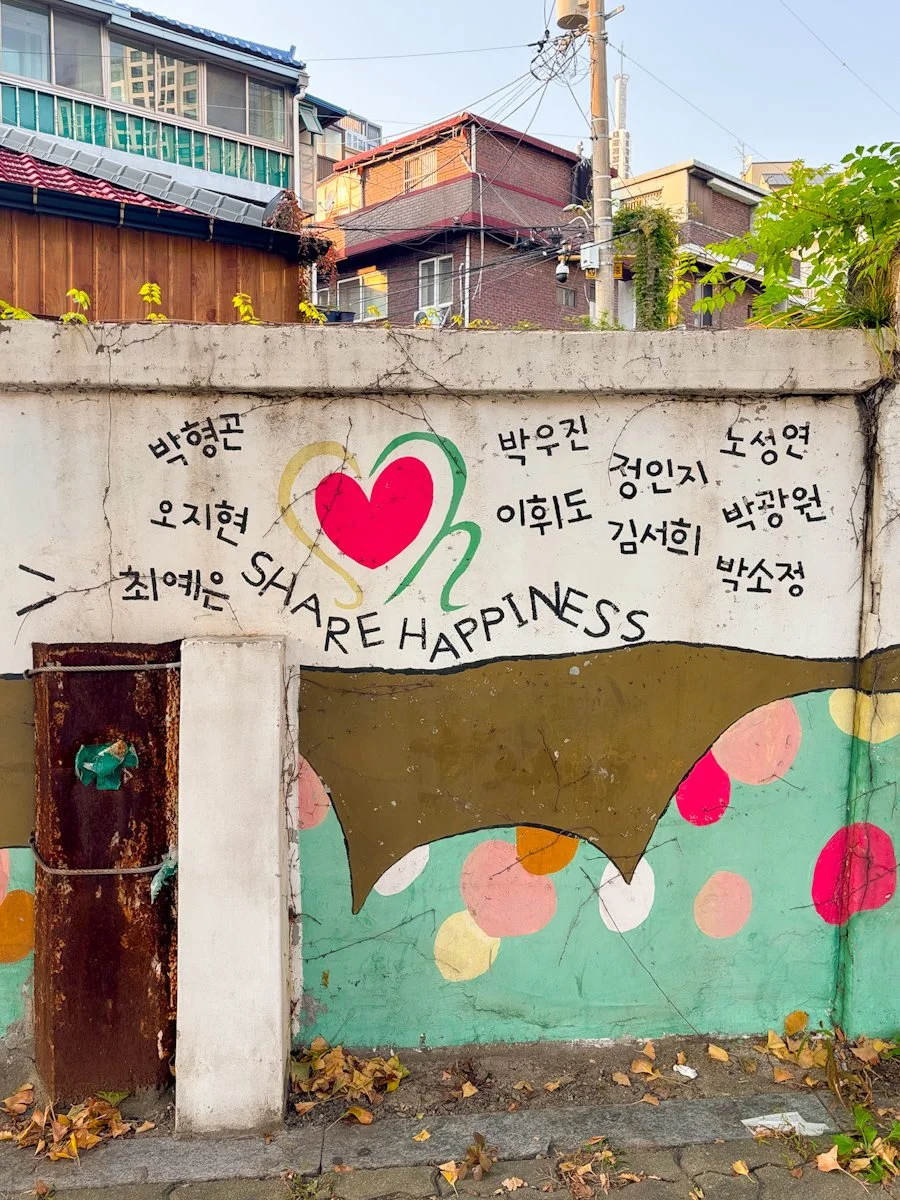 박형곤
오지현
최예은
SHARE HAPPINESS
박우진
이휘도
정인지
김서희
노성연
박광원
박소정